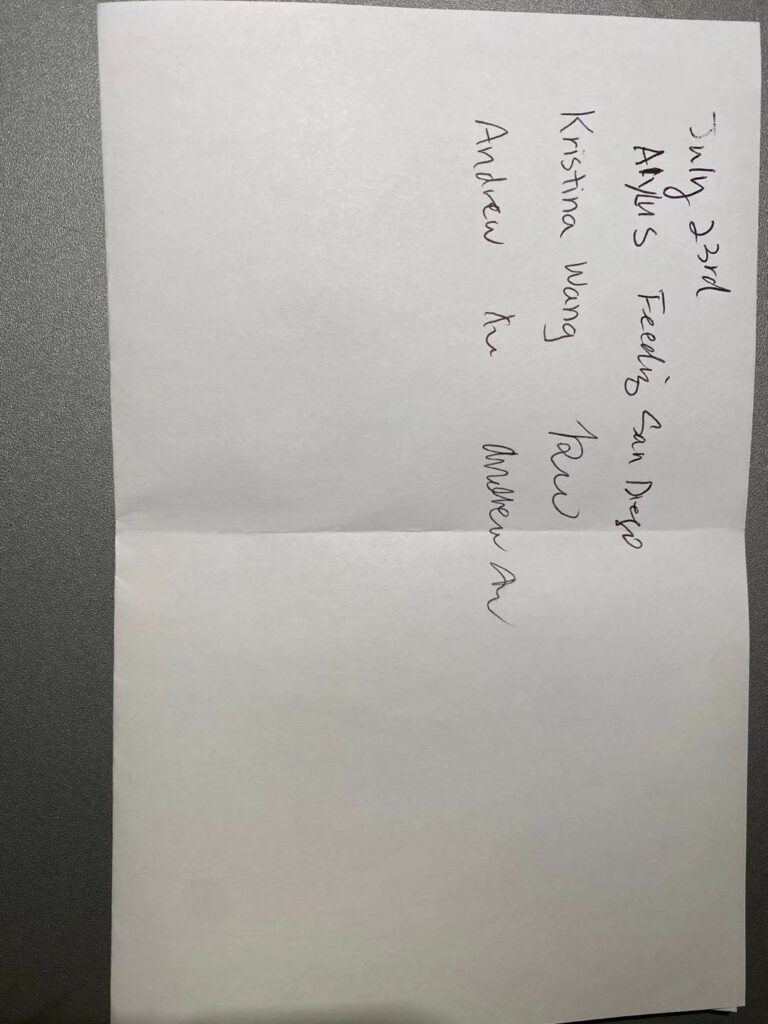 July 23rd
Feeding San Diego
Kristina Wang
Andrew Xu Andrew Xu